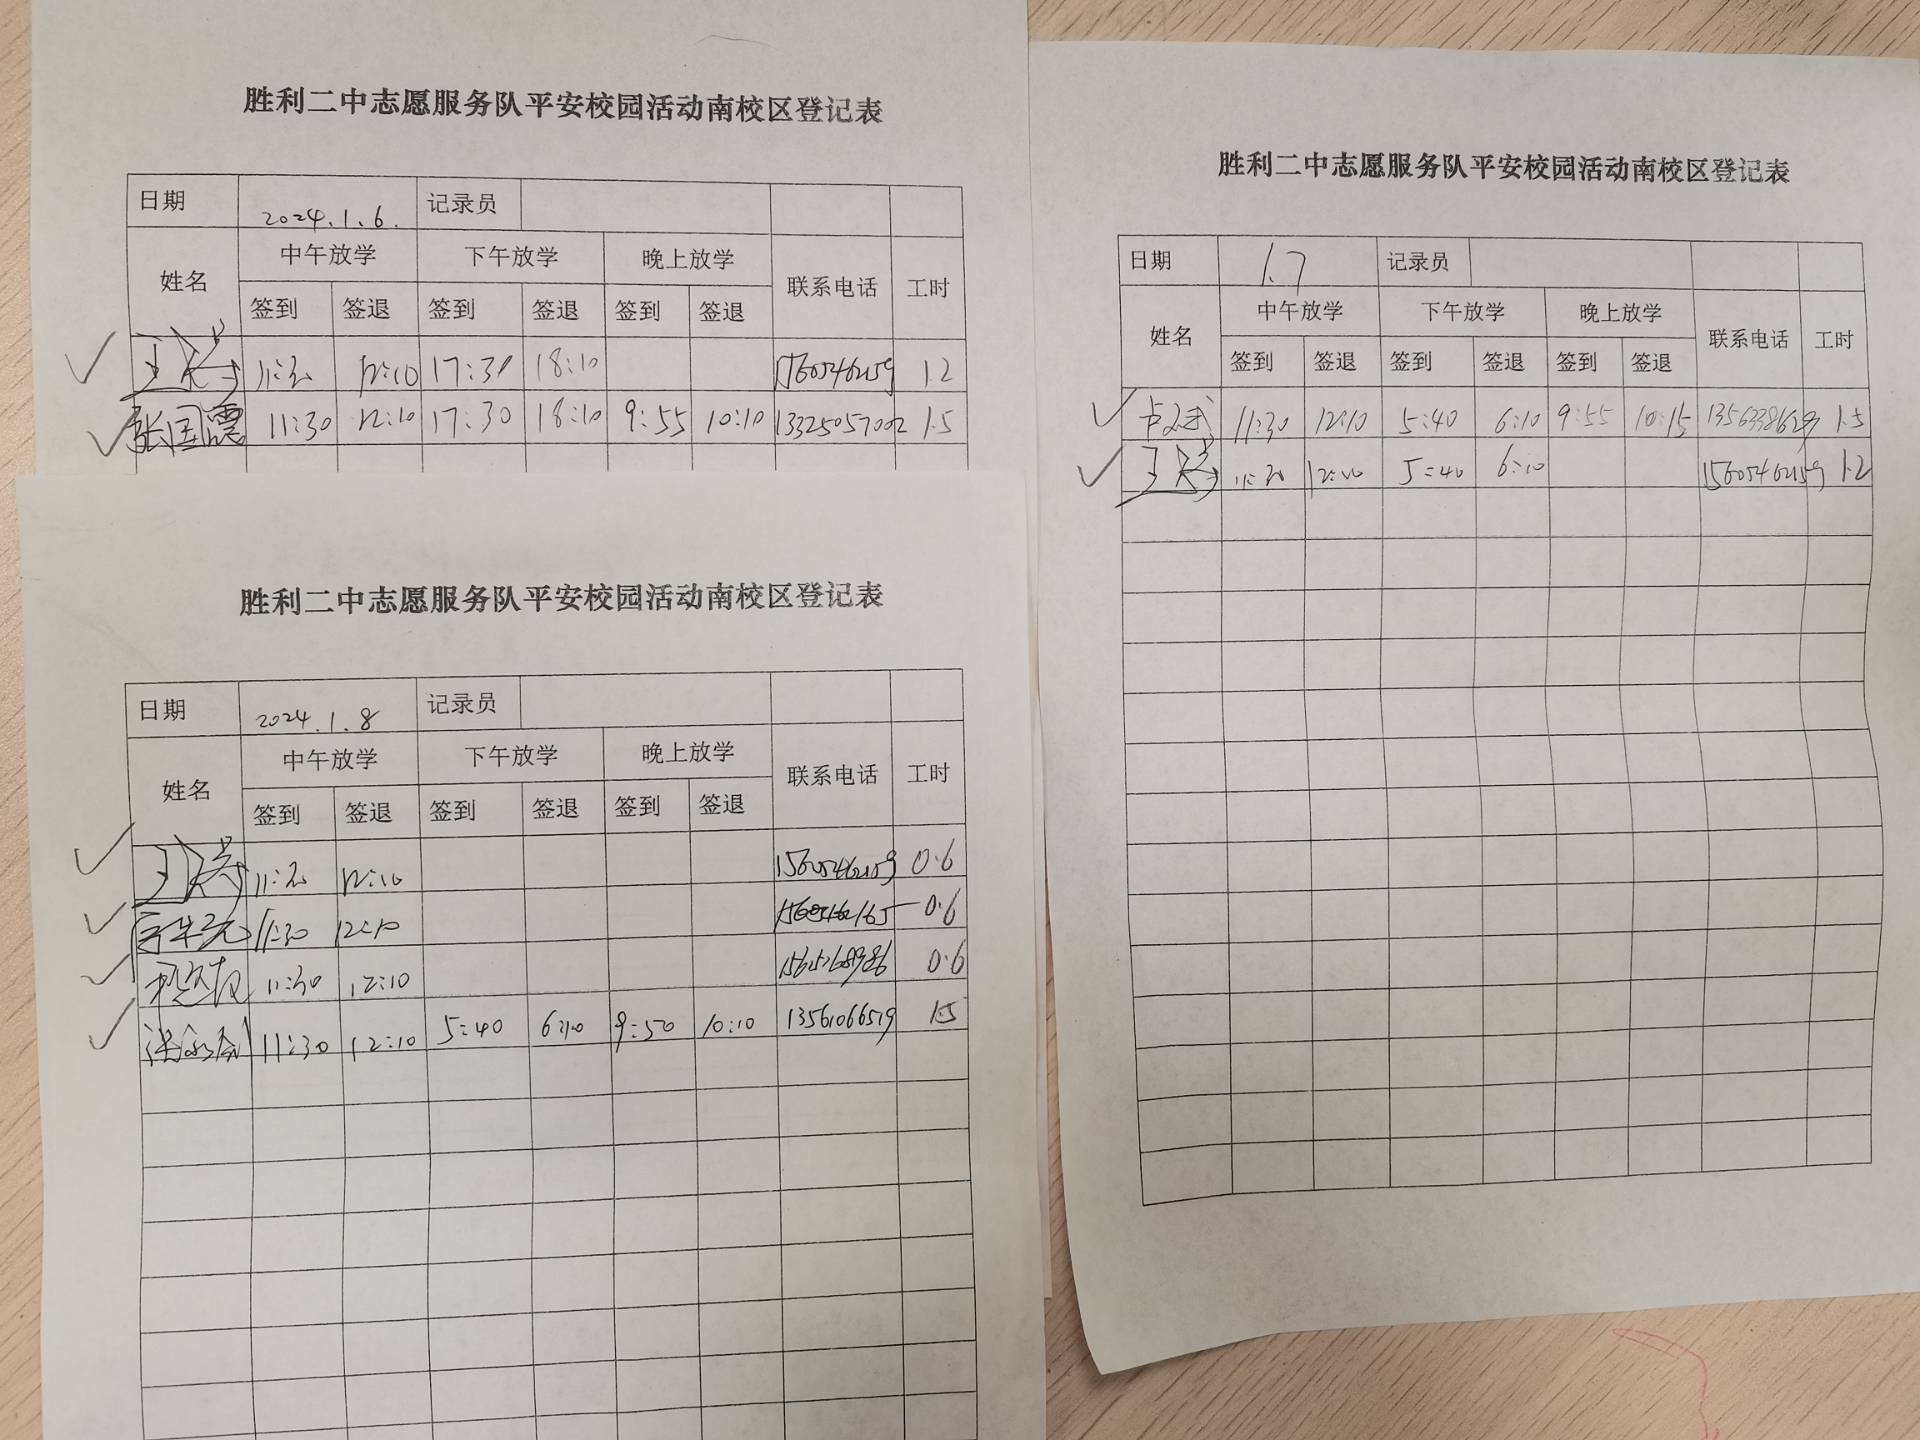 胜利二中志愿服务队平安校园活动南校区登记表
日期 2024.1.6. 记录员
姓名 中午放学 下午放学 晚上放学 联系电话 工时
签到 签退 签到 签退 签到 签退
12:10 17:30 18:10 15605462159 1.2
张国震 11:30 12:10 17:30 18:10 9:55 10:10 13325057002 1.5
胜利二中志愿服务队平安校园活动南校区登记表
日期 2024.1.8 记录员
姓名 中午放学 下午放学 晚上放学 联系电话 工时
签到 签退 签到 签退 签到 签退
12:10 15605462159 0.6
11:30 12:10 0.6
11:30 12:10 0.6
11:30 12:10 5:40 6:10 9:50 10:10 13561066519 1.5
胜利二中志愿服务队平安校园活动南校区登记表
日期 1.7 记录员
姓名 中午放学 下午放学 晚上放学 联系电话 工时
签到 签退 签到 签退 签到 签退
11:30 12:10 5:40 6:10 9:55 10:15 1.5
12:10 5:40 6:10 15605462159 1.2